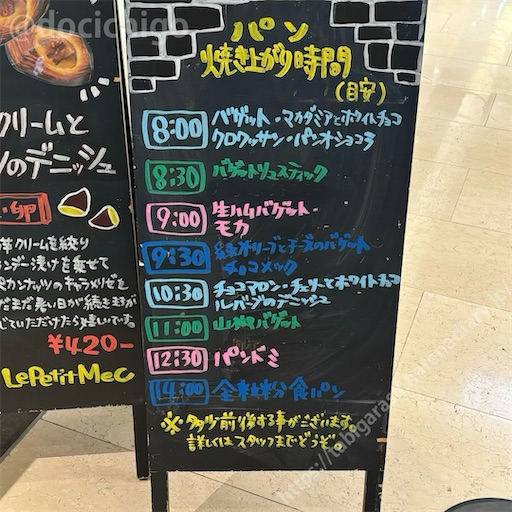 @docichigo
パン
焼き上がり時間
(目安)
8:00 バゲット・マカダミアとホワイトチョコ
クロワッサン・パンオショコラ
8:30 バゲットリュスティック
9:00 生ハムバゲット・
モカ
9:30 緑オリーブとチーズのバゲット
チョコメック
10:30 チョコマロン・チェリーとホワイトチョコ
ルバーブのデニッシュ
11:00 山型バゲット
12:30 パンドミ
14:00 全粒粉食パン
※多少前後する事がございます。
詳しくはスタッフまでどうぞ。
クリームと
のデニッシュ
卵
クリームを絞り
漬けを乗せて
カンナッツのキャラメリゼを
まだ暑い日が続きますが
じていただけたら嬉しいです。
¥420-
LePetitMec